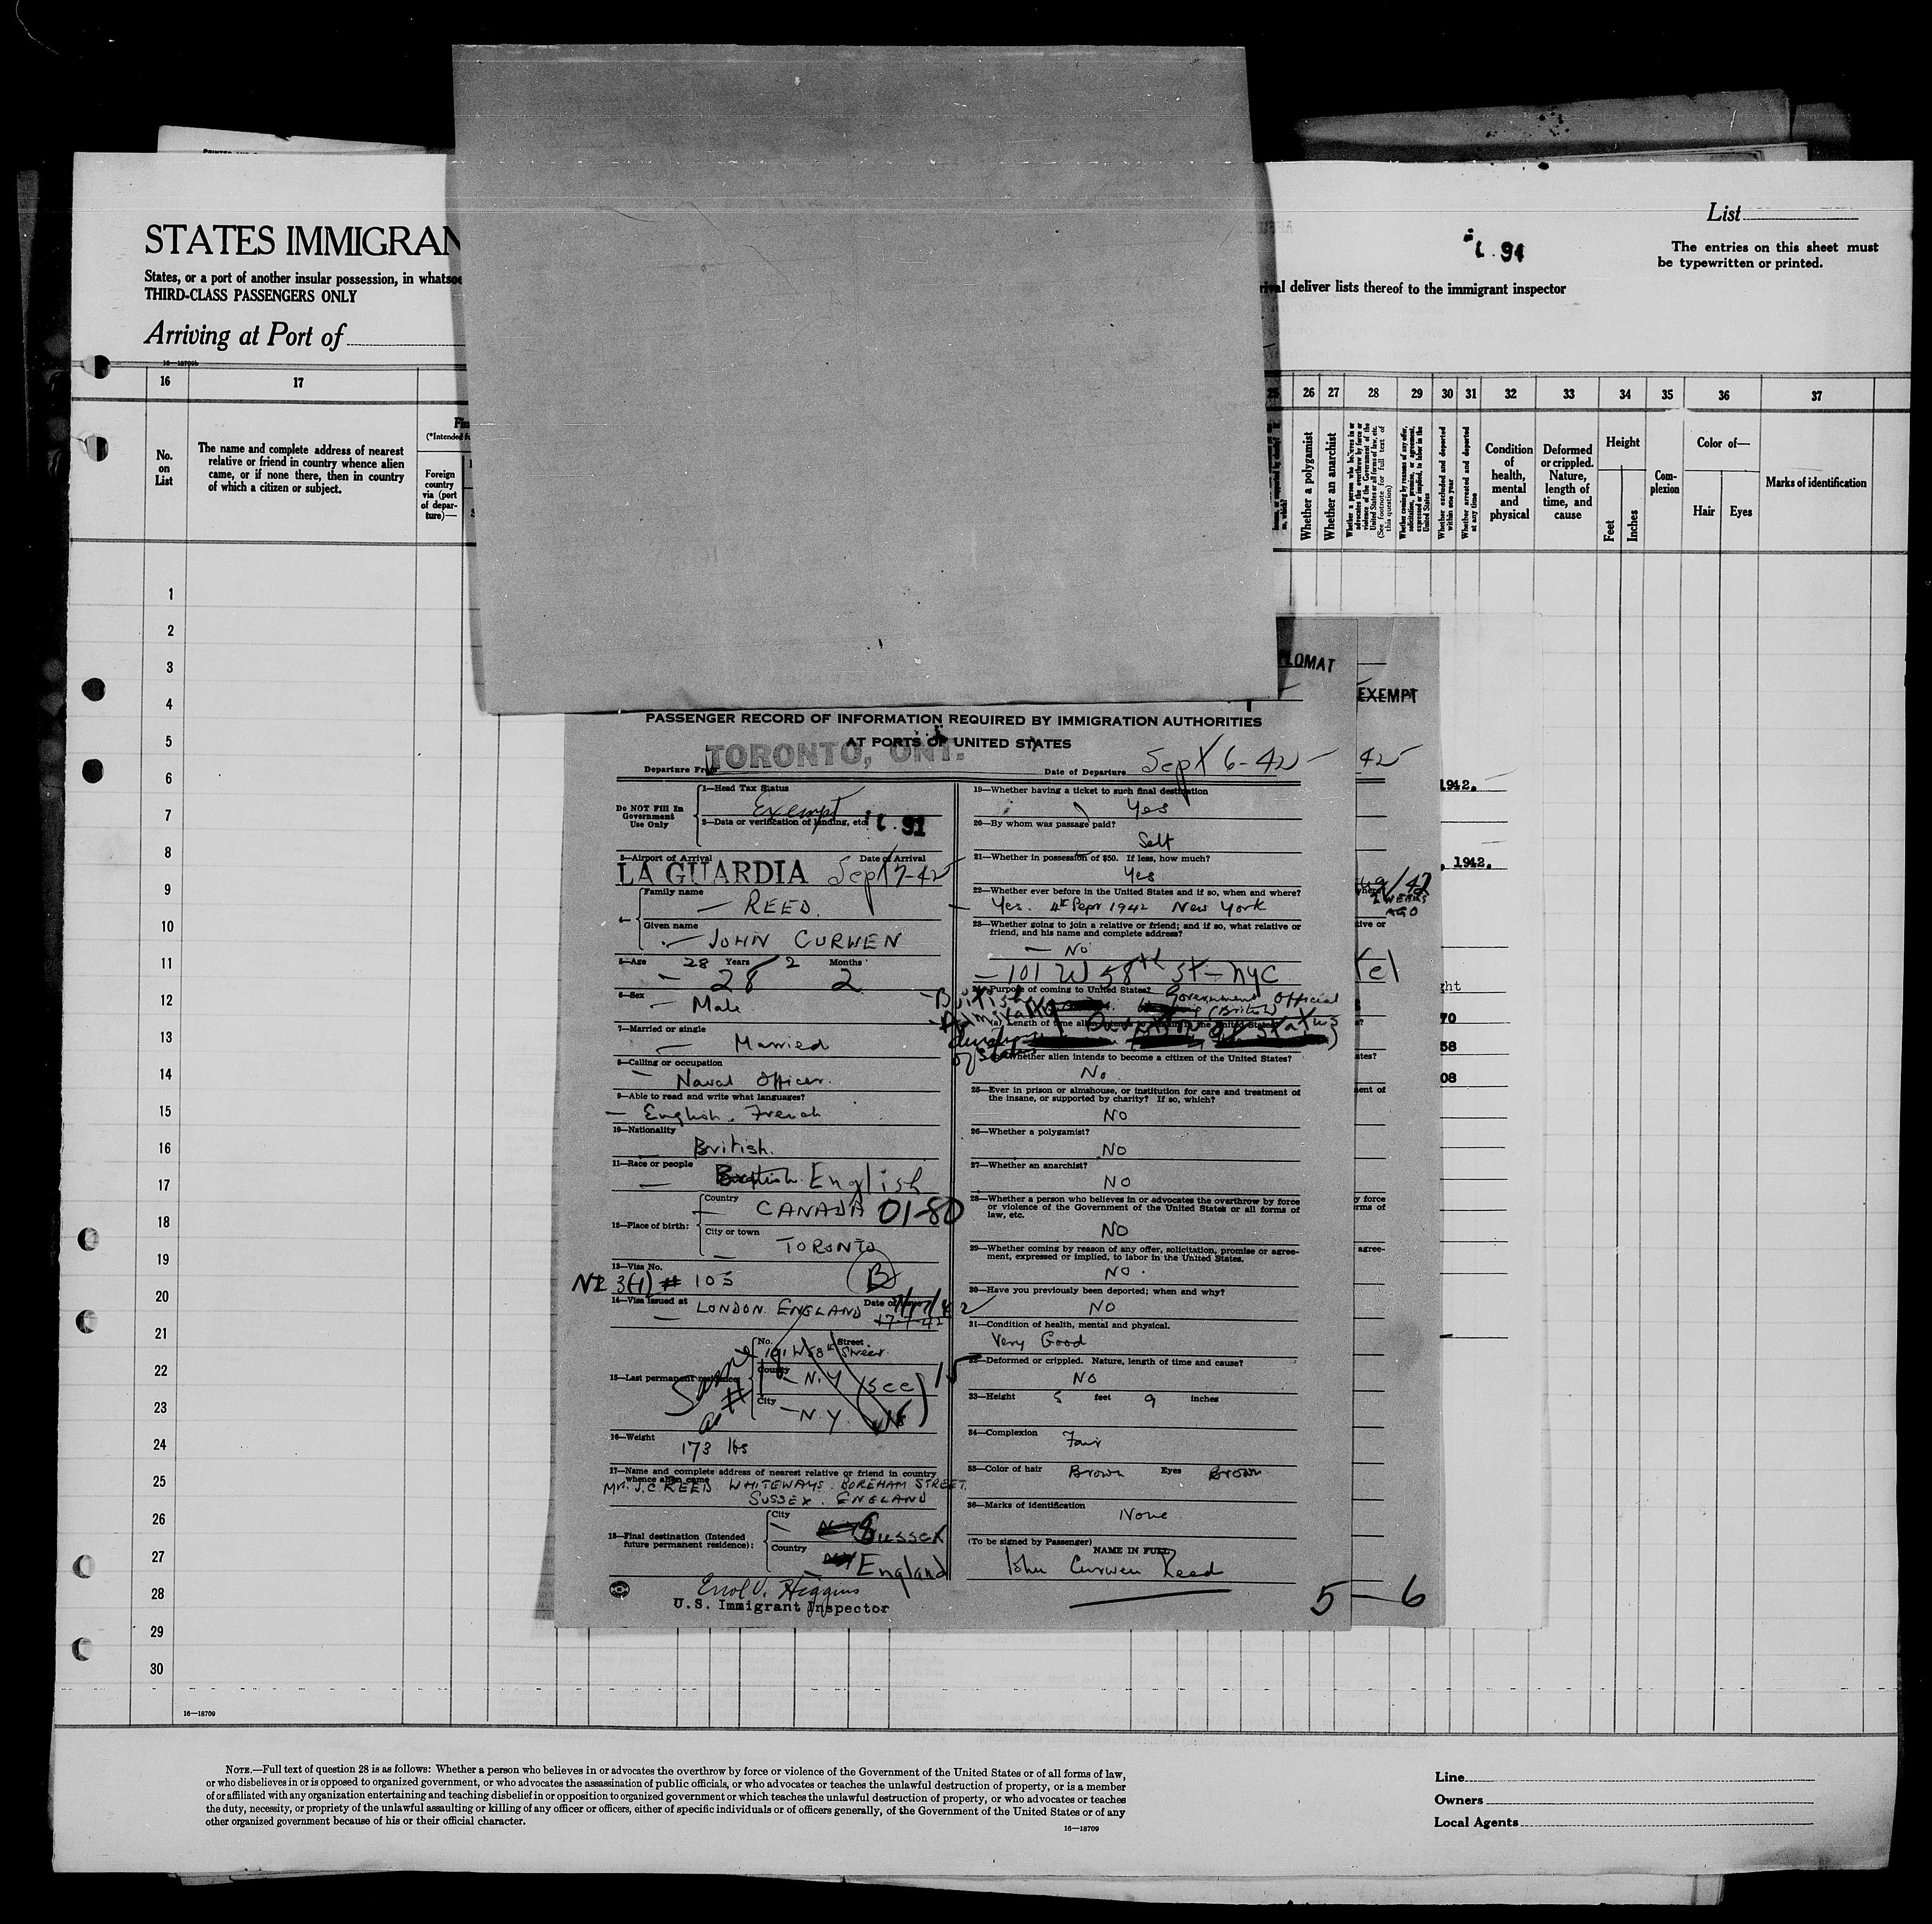 STATES IMMIGRAN
States, or a port of another insular possession, in whatsoe
THIRD-CLASS PASSENGERS ONLY
Arriving at Port of
16—18709b
List
The entries on this sheet must
be typewritten or printed.
rival deliver lists thereof to the immigrant inspector
16 17
26 27 28 29 30 31 32 33 34 35 36 37
No.
on
List
The name and complete address of nearest
relative or friend in country whence alien
came, or if none there, then in country
of which a citizen or subject.
(*Intended
Foreign
country
via (port
of depar-
ture)—
Whether a polygamist
Whether an anarchist
Whether a person who believes in or
advocates the overthrow by force or
violence of the Government of the
United States or all forms of law, etc.
(See footnote for full text of
this question)
Whether coming by reasons of any offer,
solicitation, promise, or agreement,
expressed or implied, to labor in the
United States
Whether excluded and deported
within one year
Whether arrested and deported
at any time
Condition
of
health,
mental
and
physical
Deformed
or crippled.
Nature,
length of
time, and
cause
Height
Feet
Inches
Com-
plexion
Color of—
Hair Eyes
Marks of identification
1
2
3
4
5
6
7
8
9
10
11
12
13
14
15
16
17
18
19
20
21
22
23
24
25
26
27
28
29
30
16—18709
LOMAT
EXEMPT
42
1942.
, 1942.
2 WEEKS
AGO
tive or
70
58
08
PASSENGER RECORD OF INFORMATION REQUIRED BY IMMIGRATION AUTHORITIES
AT PORTS OF UNITED STATES
Departure From TORONTO, ONT.
Date of Departure Sept 6-42
Do NOT Fill In
Government
Use Only
1—Head Tax Status
Exempt
2—Data or verification of landing, etc.
3—Airport of Arrival Date of Arrival
LA GUARDIA Sept 7-42
4— Family name
REED.
Given name
JOHN CURWEN
5—Age 28 Years 2 Months
28 2
6—Sex
Male
7—Married or single
Married
8—Calling or occupation
Naval Officer.
9—Able to read and write what languages?
English. French
10—Nationality
British.
11—Race or people
English
12—Place of birth:
Country
CANADA 01-80
City or town
TORONTO
13—Visa No.
3(1) # 103 B
14—Visa issued at LONDON. ENGLAND Date of Issue
17-7-42
15—Last permanent residence:
No. Street
101 W 58th Street
County
N.Y
City
N.Y.
Same
as #
(see 15
16—Weight
173 lbs
17—Name and complete address of nearest relative or friend in country
whence alien came
J.C. REED WHITEWAYS. BOREHAM STREET.
SUSSEX. ENGLAND
18—Final destination (Intended
future permanent residence):
City
Sussex
Country
England
Errol V. Higgins
U.S. Immigrant Inspector
19—Whether having a ticket to such final destination
Yes
20—By whom was passage paid?
Self
21—Whether in possession of $50. If less, how much?
Yes
22—Whether ever before in the United States and if so, when and where?
Yes. 4th Sept 1942 New York
23—Whether going to join a relative or friend; and if so, what relative or
friend, and his name and complete address?
No
101 W 58th St - NYC
24—Purpose of coming to United States?
Government Official
(British)
British
Admiralty
(a) Length of time
Duration of Status
Whether alien intends to become a citizen of the United States?
No
25—Ever in prison or almshouse, or institution for care and treatment of
the insane, or supported by charity? If so, which?
NO
26—Whether a polygamist?
NO
27—Whether an anarchist?
NO
28—Whether a person who believes in or advocates the overthrow by force
or violence of the Government of the United States or all forms of
law, etc.
NO
29—Whether coming by reason of any offer, solicitation, promise or agree-
ment, expressed or implied, to labor in the United States.
NO.
30—Have you previously been deported; when and why?
NO
31—Condition of health, mental and physical.
Very Good
32—Deformed or crippled. Nature, length of time and cause?
NO
33—Height 5 feet 9 inches
34—Complexion Fair
35—Color of hair Brown Eyes Brown
36—Marks of identification
None
(To be signed by Passenger)
NAME IN FULL
John Curwen Reed
5 — 6
NOTE.—Full text of question 28 is as follows: Whether a person who believes in or advocates the overthrow by force or violence of the Government of the United States or of all forms of law,
or who disbelieves in or is opposed to organized government, or who advocates the assassination of public officials, or who advocates or teaches the unlawful destruction of property, or is a member
of or affiliated with any organization entertaining and teaching disbelief in or opposition to organized government or which teaches the unlawful destruction of property, or who advocates or teaches
the duty, necessity, or propriety of the unlawful assaulting or killing of any officer or officers, either of specific individuals or of officers generally, of the Government of the United States or of any
other organized government because of his or their official character.
16—18709
Line
Owners
Local Agents